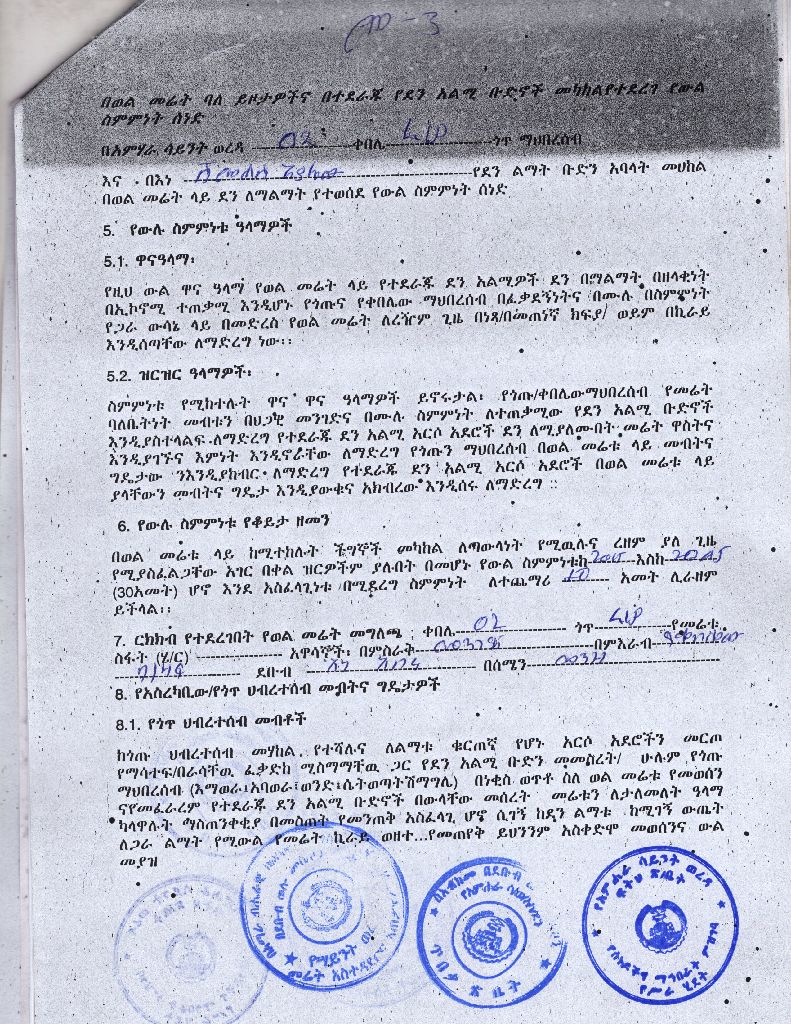 በወል መሬት ባለ ይዞታዎችና በተደራጁ የደን አልሚ ቡድኖች መካከልየተደረገ የውል
ስምምነት ሰነድ
በአምሃራ ሳይንት ወረዳ 02 ቀበሌ ጎጥ ማህበረሰብ
እና በእነ የደን ልማት ቡድን አባላት መሀከል
በወል መሬት ላይ ደን ለማልማት የተወሰደ የውል ስምምነት ሰነድ
5. የውሉ ስምምነቱ ዓላማዎች
5.1. ዋናዓላማ፡
የዚህ ውል ዋና ዓላማ የወል መሬት ላይ የተደራጁ ደን አልሚዎች ደን በማልማት በዘላቂነት
በኢኮኖሚ ተጠቃሚ እንዲሆኑ የጎጡና የቀበሌው ማህበረሰብ በፈቃደኝነትና በሙሉ በስምምነት
የጋራ ውሳኔ ላይ በመድረስ የወል መሬት ለረዥም ጊዜ በነጻ/በመጠነኛ ክፍያ/ ወይም በኪራይ
እንዲሰጣቸው ለማድረግ ነው፡፡
5.2. ዝርዝር ዓላማዎች፡
ስምምነቱ የሚከተሉት ዋና ዋና ዓላማዎች ይኖሩታል፡ የጎጡ/ቀበሌውማህበረሰብ የመሬት
ባለቤትነት መብቱን በህጋዊ መንገድና በሙሉ ስምምነት ለተጠቃሚው የደን አልሚ ቡድኖች
እንዲያስተላልፍ ለማድረግ የተደራጁ ደን አልሚ አርሶ አደሮች ደን ለሚያለሙበት መሬት ዋስትና
እንዲያገኙና እምነት እንዲኖራቸው ለማድረግ የጎጡን ማህበረሰብ በወል መሬቱ ላይ መብትና
ግዴታው ንእንዲያከብር ለማድረግ የተደራጁ ደን አልሚ አርሶ አደሮች በወል መሬቱ ላይ
ያላቸውን መብትና ግዴታ እንዲያውቁና አክብረው እንዲሰሩ ለማድረግ ፡፡
6. የውሉ ስምምነቱ የቆይታ ዘመን
በወል መሬቱ ላይ ከሚተከሉት ችግኞች መካከል ለጣውላነት የሚዉሉና ረዘም ያለ ጊዜ
የሚያስፈልጋቸው አገር በቀል ዝርዎችም ያሉበት በመሆኑ የውል ስምምነቱከ እስከ 2045
(30አመት) ሆኖ እንደ አስፈላጊነቱ በሚደረግ ስምምነት ለተጨማሪ 10 አመት ሊራዘም
ይችላል፡፡
7. ርክክብ የተደረገበት የወል መሬት መግለጫ ፡ ቀበሌ 02 ጎጥ የመሬቱ
ስፋት (ሄ/ር) አዋሳኞች፡ በምስራቅ መንገድ በምእራብ
ደቡብ በሰሜን
8. የአስረካቢው/የጎጥ ህብረተሰብ መብትና ግዴታዎች
8.1. የጎጥ ህብረተሰብ መብቶች
ከጎጡ ህብረተሰብ መሃከል የተሻሉና ለልማቱ ቁርጠኛ የሆኑ አርሶ አደሮችን መርጦ
የማሳተፍ/በራሳቸዉ ፈቃድከ ሚስማማቸዉ ጋር የደን አልሚ ቡድን መመስረት/ ሁሉም የጎጡ
ማህበረሰብ (እማወራ፣አባወራ፣ወንድ፣ሴትወጣትሽማግሌ) በነቂስ ወጥቶ ስለ ወል መሬቱ የመወሰን
ናየመፈራረም የተደራጁ ደን አልሚ ቡድኖች በውላቸው መሰረት መሬቱን ለታለመለት ዓላማ
ካላዋሉት ማስጠንቀቂያ በመስጠት የመንጠቅ አስፈላጊ ሆኖ ሲገኝ ከደን ልማቱ ከሚገኝ ውጤት
ለጋራ ልማት የሚውል የመሬት ኪራይ ወዘተ...የመጠየቅ ይህንንም አስቀድሞ መወሰንና ውል
መያዝ
የአምሐራ ሳይንት ወረዳ
ፍትህ ጽ/ቤት
የስራ ሂደት